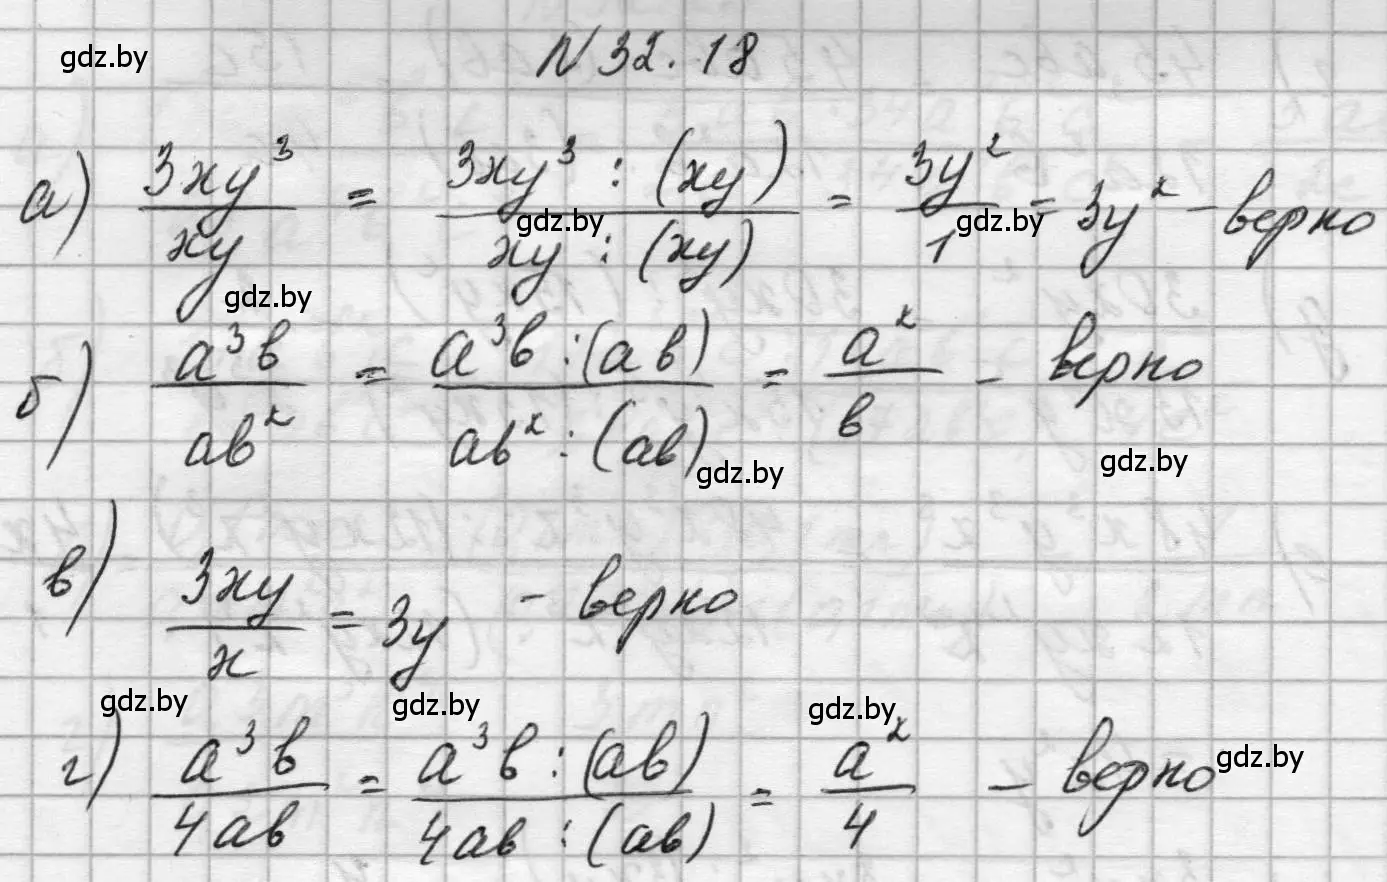 gdz.by
N 32.18
а) 3xy³/xy = 3xy³ : (xy)/xy : (xy) = 3y²/1 = 3y² - верно
gdz.by gdz.by
gdz.by
б) a³b/ab² = a³b : (ab)/ab² : (ab) = a²/b - верно
gdz.by gdz.by
в) 3xy/x = 3y - верно
gdz.by gdz.by gdz.by
г) a³b/4ab = a³b : (ab)/4ab : (ab) = a²/4 - верно
gdz.by